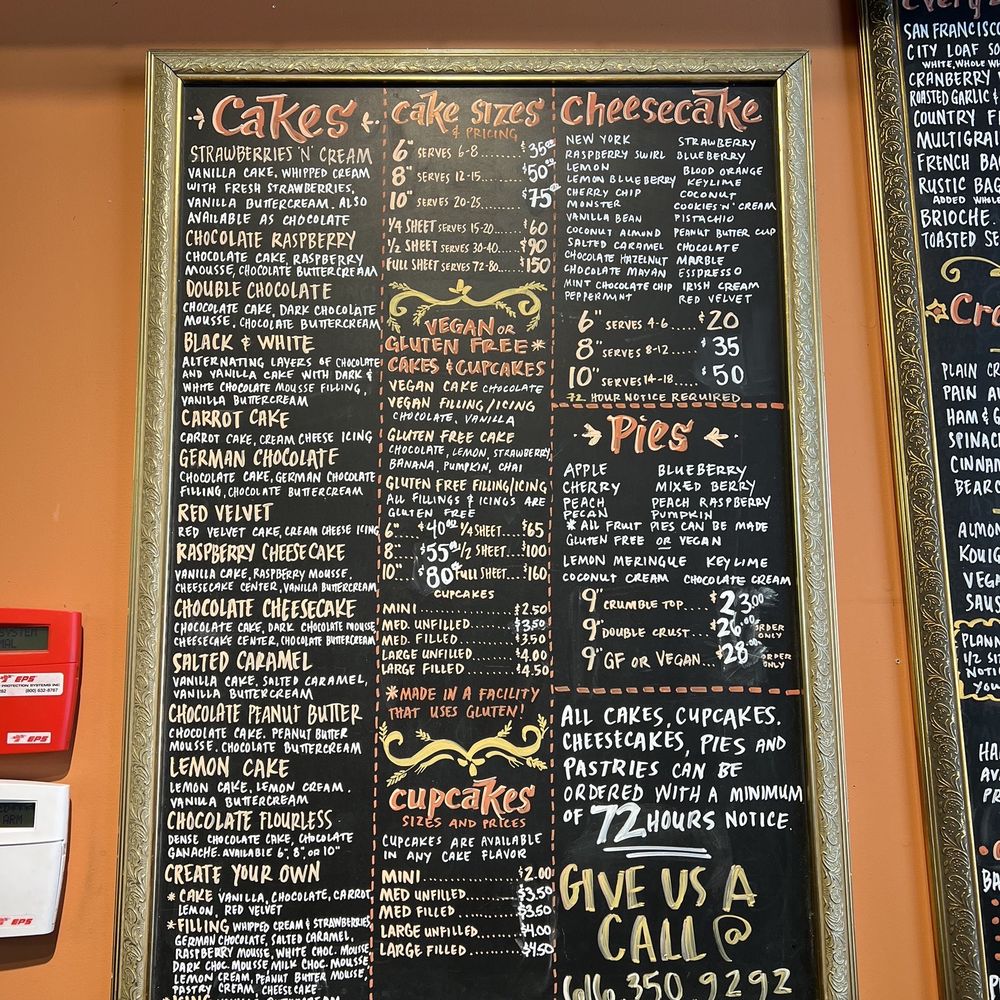 Cakes
STRAWBERRIES 'N' CREAM
VANILLA CAKE, WHIPPED CREAM
WITH FRESH STRAWBERRIES,
VANILLA BUTTERCREAM. ALSO
AVAILABLE AS CHOCOLATE
CHOCOLATE RASPBERRY
CHOCOLATE CAKE, RASPBERRY
MOUSSE, CHOCOLATE BUTTERCREAM
DOUBLE CHOCOLATE
CHOCOLATE CAKE, DARK CHOCOLATE
MOUSSE, CHOCOLATE BUTTERCREAM
BLACK & WHITE
ALTERNATING LAYERS OF CHOCOLATE
AND VANILLA CAKE WITH DARK &
WHITE CHOCOLATE MOUSSE FILLING,
VANILLA BUTTERCREAM
CARROT CAKE
CARROT CAKE, CREAM CHEESE ICING
GERMAN CHOCOLATE
CHOCOLATE CAKE, GERMAN CHOCOLATE
FILLING, CHOCOLATE BUTTERCREAM
RED VELVET
RED VELVET CAKE, CREAM CHEESE ICING
RASPBERRY CHEESECAKE
VANILLA CAKE, RASPBERRY MOUSSE,
CHEESECAKE CENTER, VANILLA BUTTERCREAM
CHOCOLATE CHEESECAKE
CHOCOLATE CAKE, DARK CHOCOLATE MOUSSE
CHEESECAKE CENTER, CHOCOLATE BUTTERCREAM
SALTED CARAMEL
VANILLA CAKE, SALTED CARAMEL,
VANILLA BUTTERCREAM
CHOCOLATE PEANUT BUTTER
CHOCOLATE CAKE, PEANUT BUTTER
MOUSSE, CHOCOLATE BUTTERCREAM
LEMON CAKE
LEMON CAKE, LEMON CREAM,
VANILLA BUTTERCREAM
CHOCOLATE FLOURLESS
DENSE CHOCOLATE CAKE, CHOCOLATE
GANACHE. AVAILABLE 6", 8", OR 10"
CREATE YOUR OWN
*CAKE VANILLA, CHOCOLATE, CARROT,
LEMON, RED VELVET
*FILLING WHIPPED CREAM & STRAWBERRIES
GERMAN CHOCOLATE, SALTED CARAMEL,
RASPBERRY MOUSSE, WHITE CHOC. MOUSSE
DARK CHOC. MOUSSE, MILK CHOC. MOUSSE
LEMON CREAM, PEANUT BUTTER MOUSSE,
PASTRY CREAM, CHEESECAKE
cake sizes
& PRICING
6" SERVES 6-8......$35.00
8" SERVES 12-15......$50.00
10" SERVES 20-25......$75.00
1/4 SHEET SERVES 15-20......$60
1/2 SHEET SERVES 30-40...$90
FULL SHEET SERVES 72-80...$150
VEGAN OR
GLUTEN FREE*
CAKES & CUPCAKES
VEGAN CAKE CHOCOLATE
VEGAN FILLING/ICING
CHOCOLATE, VANILLA
GLUTEN FREE CAKE
CHOCOLATE, LEMON, STRAWBERRY,
BANANA, PUMPKIN, CHAI
GLUTEN FREE FILLING/ICING
ALL FILLINGS & ICINGS ARE
GLUTEN FREE
6"...$40.00 1/4 SHEET...$65
8"...$55.00 1/2 SHEET...$100
10"...$80.00 FULL SHEET...$160
CUPCAKES
MINI......$2.50
MED. UNFILLED......$3.50
MED. FILLED......$3.50
LARGE UNFILLED......$4.00
LARGE FILLED......$4.50
*MADE IN A FACILITY
THAT USES GLUTEN!
cupcakes
SIZES AND PRICES
CUPCAKES ARE AVAILABLE
IN ANY CAKE FLAVOR
MINI......$2.00
MED UNFILLED......$3.50
MED FILLED......$3.50
LARGE UNFILLED......$4.00
LARGE FILLED......$4.50
cheesecake
NEW YORK STRAWBERRY
RASPBERRY SWIRL BLUEBERRY
LEMON BLOOD ORANGE
LEMON BLUEBERRY KEYLIME
CHERRY CHIP COCONUT
MONSTER COOKIES 'N' CREAM
VANILLA BEAN PISTACHIO
COCONUT ALMOND PEANUT BUTTER CUP
SALTED CARAMEL CHOCOLATE
CHOCOLATE HAZELNUT MARBLE
CHOCOLATE MAYAN ESSPRESSO
MINT CHOCOLATE CHIP IRISH CREAM
PEPPERMINT RED VELVET
6" SERVES 4-6.....$20
8" SERVES 8-12.....$35
10" SERVES 14-18.....$50
72 HOUR NOTICE REQUIRED
Pies
APPLE BLUEBERRY
CHERRY MIXED BERRY
PEACH PEACH RASPBERRY
PECAN PUMPKIN
*ALL FRUIT PIES CAN BE MADE
GLUTEN FREE OR VEGAN
LEMON MERINGUE KEYLIME
COCONUT CREAM CHOCOLATE CREAM
9" CRUMBLE TOP...$23.00
9" DOUBLE CRUST...$26.00 ORDER ONLY
9" GF OR VEGAN...$28.00 ORDER ONLY
ALL CAKES, CUPCAKES,
CHEESECAKES, PIES AND
PASTRIES CAN BE
ORDERED WITH A MINIMUM
OF 72 HOURS NOTICE.
GIVE US A
CALL @
616.350.9292
SAN FRANCISCO
CITY LOAF
WHITE, WHOLE
CRANBERRY
ROASTED GARLIC &
COUNTRY
FRENCH
RUSTIC
ADDED
BRIOCHE
TOASTED
PLAIN
PAIN
HAM &
VEGA
1/2
(800) 632-8767
EPS
EPS
ARM
EPS